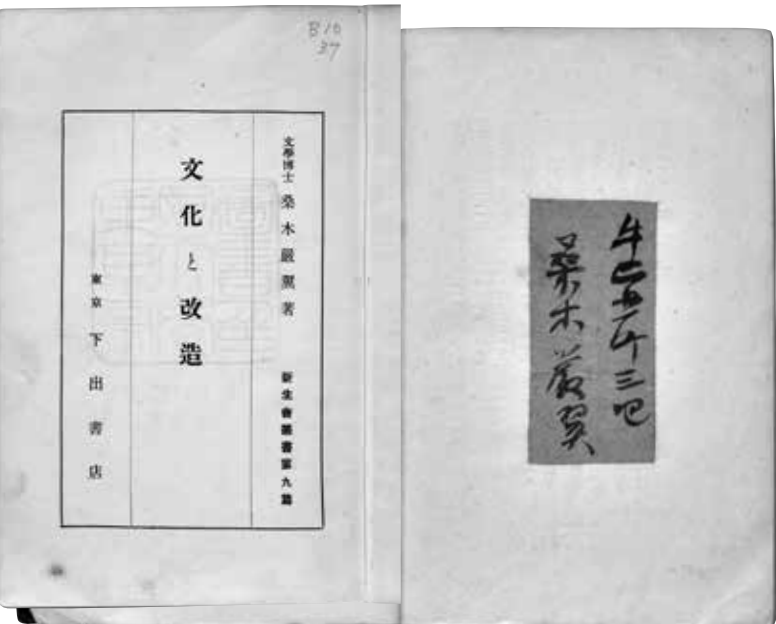 B10
37
文學博士 桑木嚴翼著
新生會叢書第九篇
文化と改造
東京 下出書店
桑木严翼